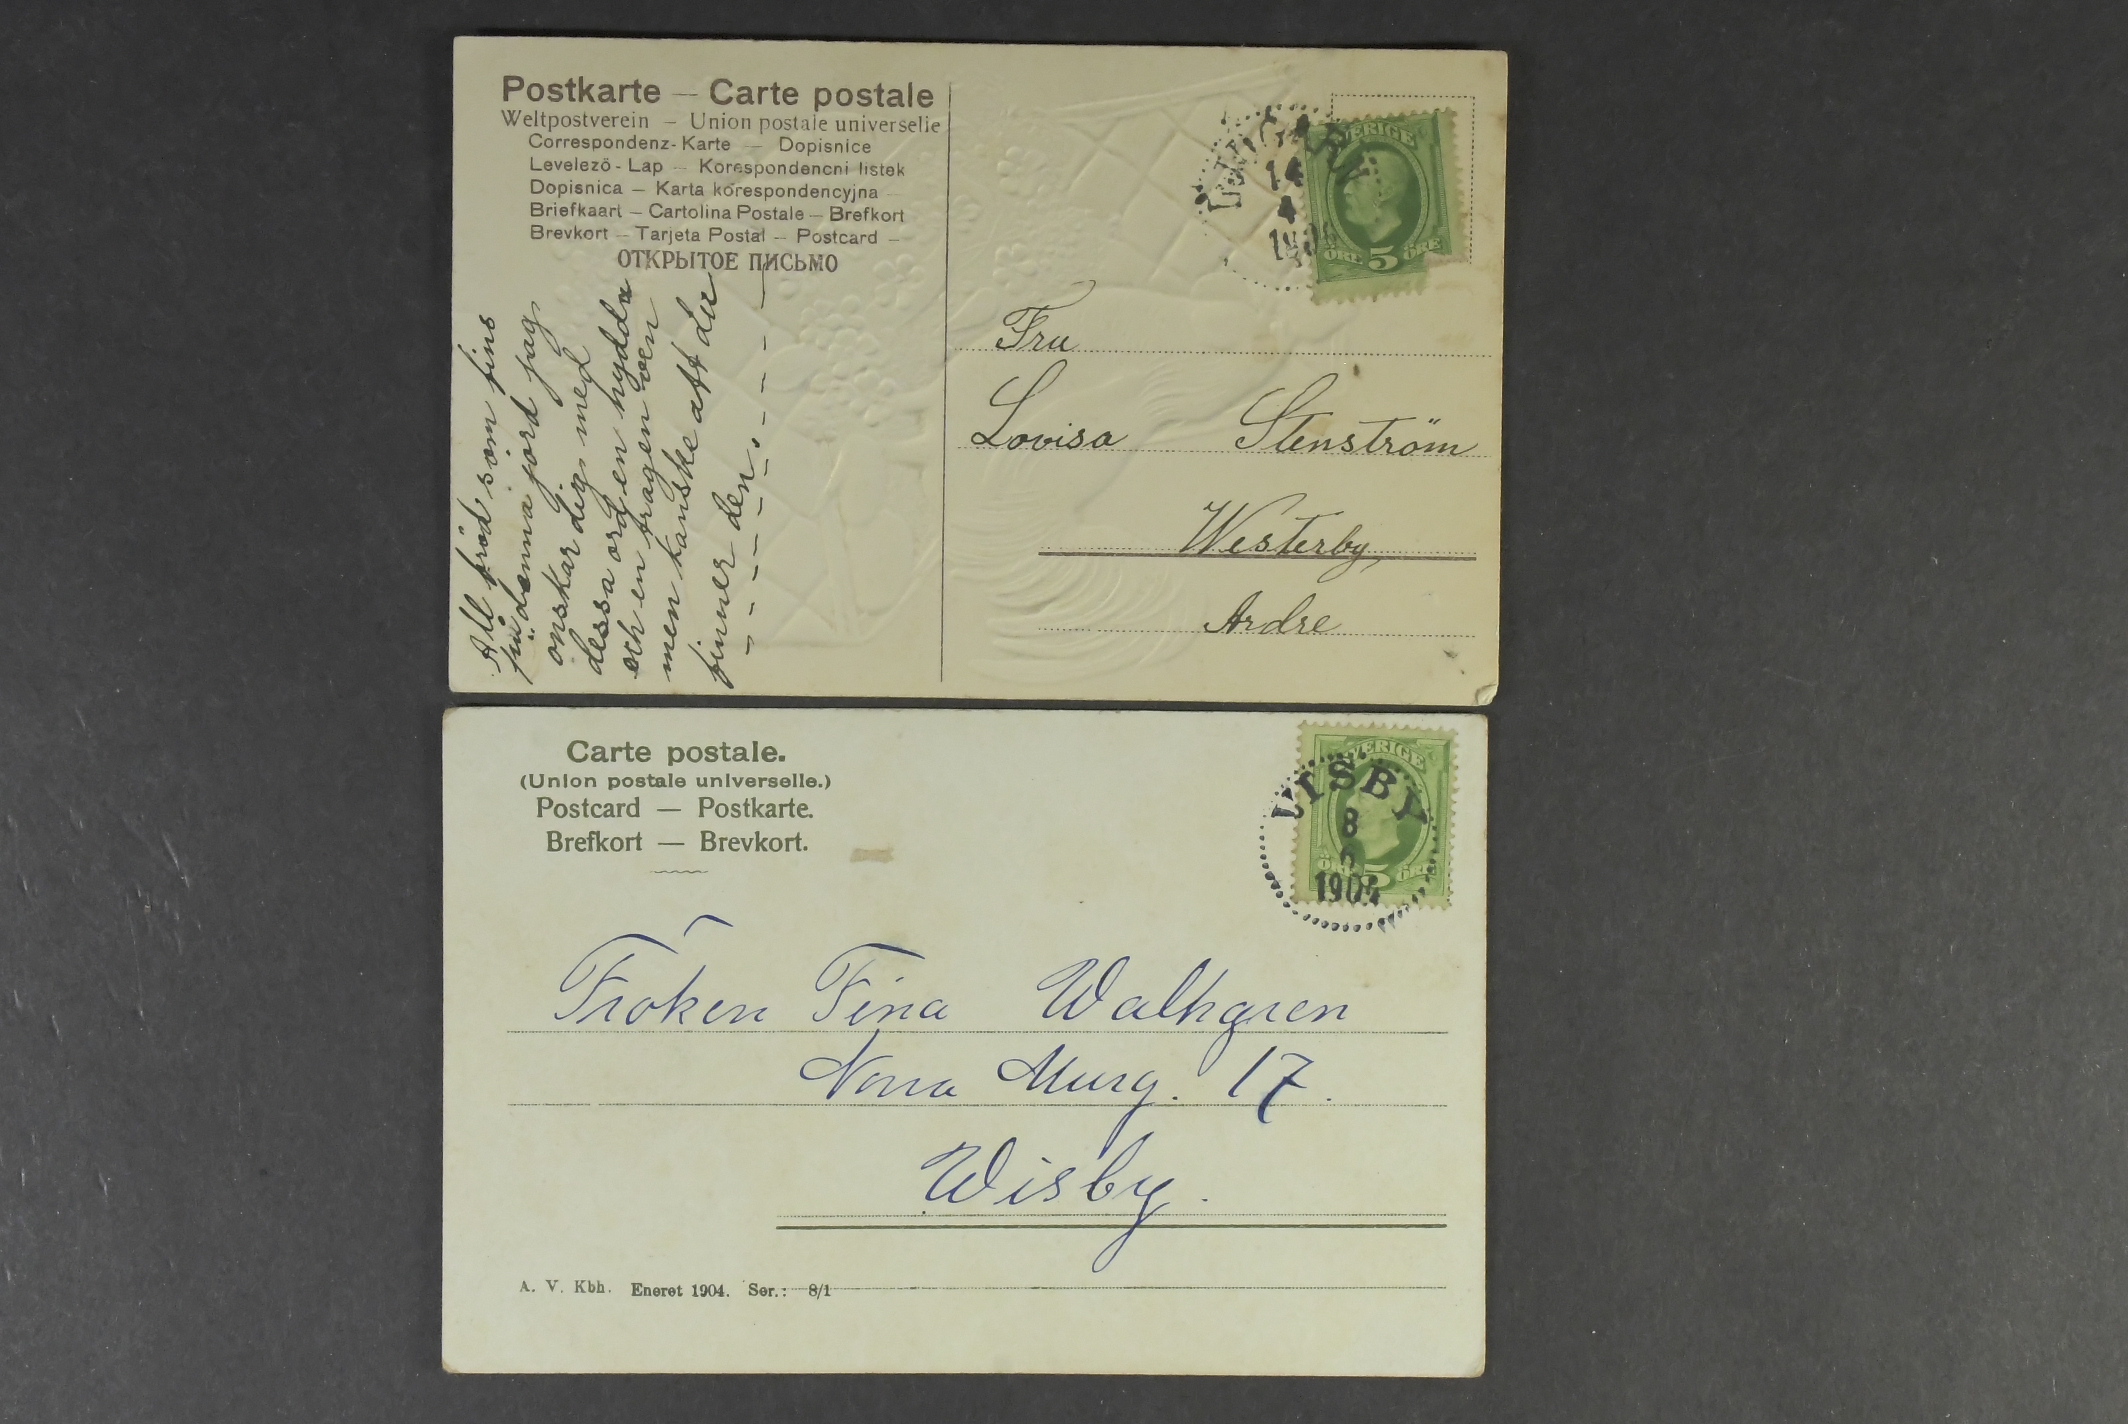 Postkarte — Carte postale
Weltpostverein — Union postale universelle
Correspondenz-Karte — Dopisnice
Levelező-Lap — Korespondencni listek
Dopisnica — Karta korespondencyjna —
Briefkaart — Cartolina Postale — Brefkort
Brevkort — Tarjeta Postal — Postcard —
ОТКРЫТОЕ ПИСЬМО
All fröd som fins
på denna jord jag
önskar dig med
dessa ord en hydda
och en trogen vän
men kanske att du
finner den.
SVERIGE
ÖRE 5 ÖRE
14
4
Fru
Lovisa Stenström
Westerby,
Ardre
Carte postale.
(Union postale universelle.)
Postcard — Postkarte.
Brefkort — Brevkort.
SVERIGE
ÖRE 5 ÖRE
VISBY
8
1904
Fröken Fina Walhgren
Norra Murg. 17.
Wisby.
A. V. Kbh. Eneret 1904. Ser.: 8/1